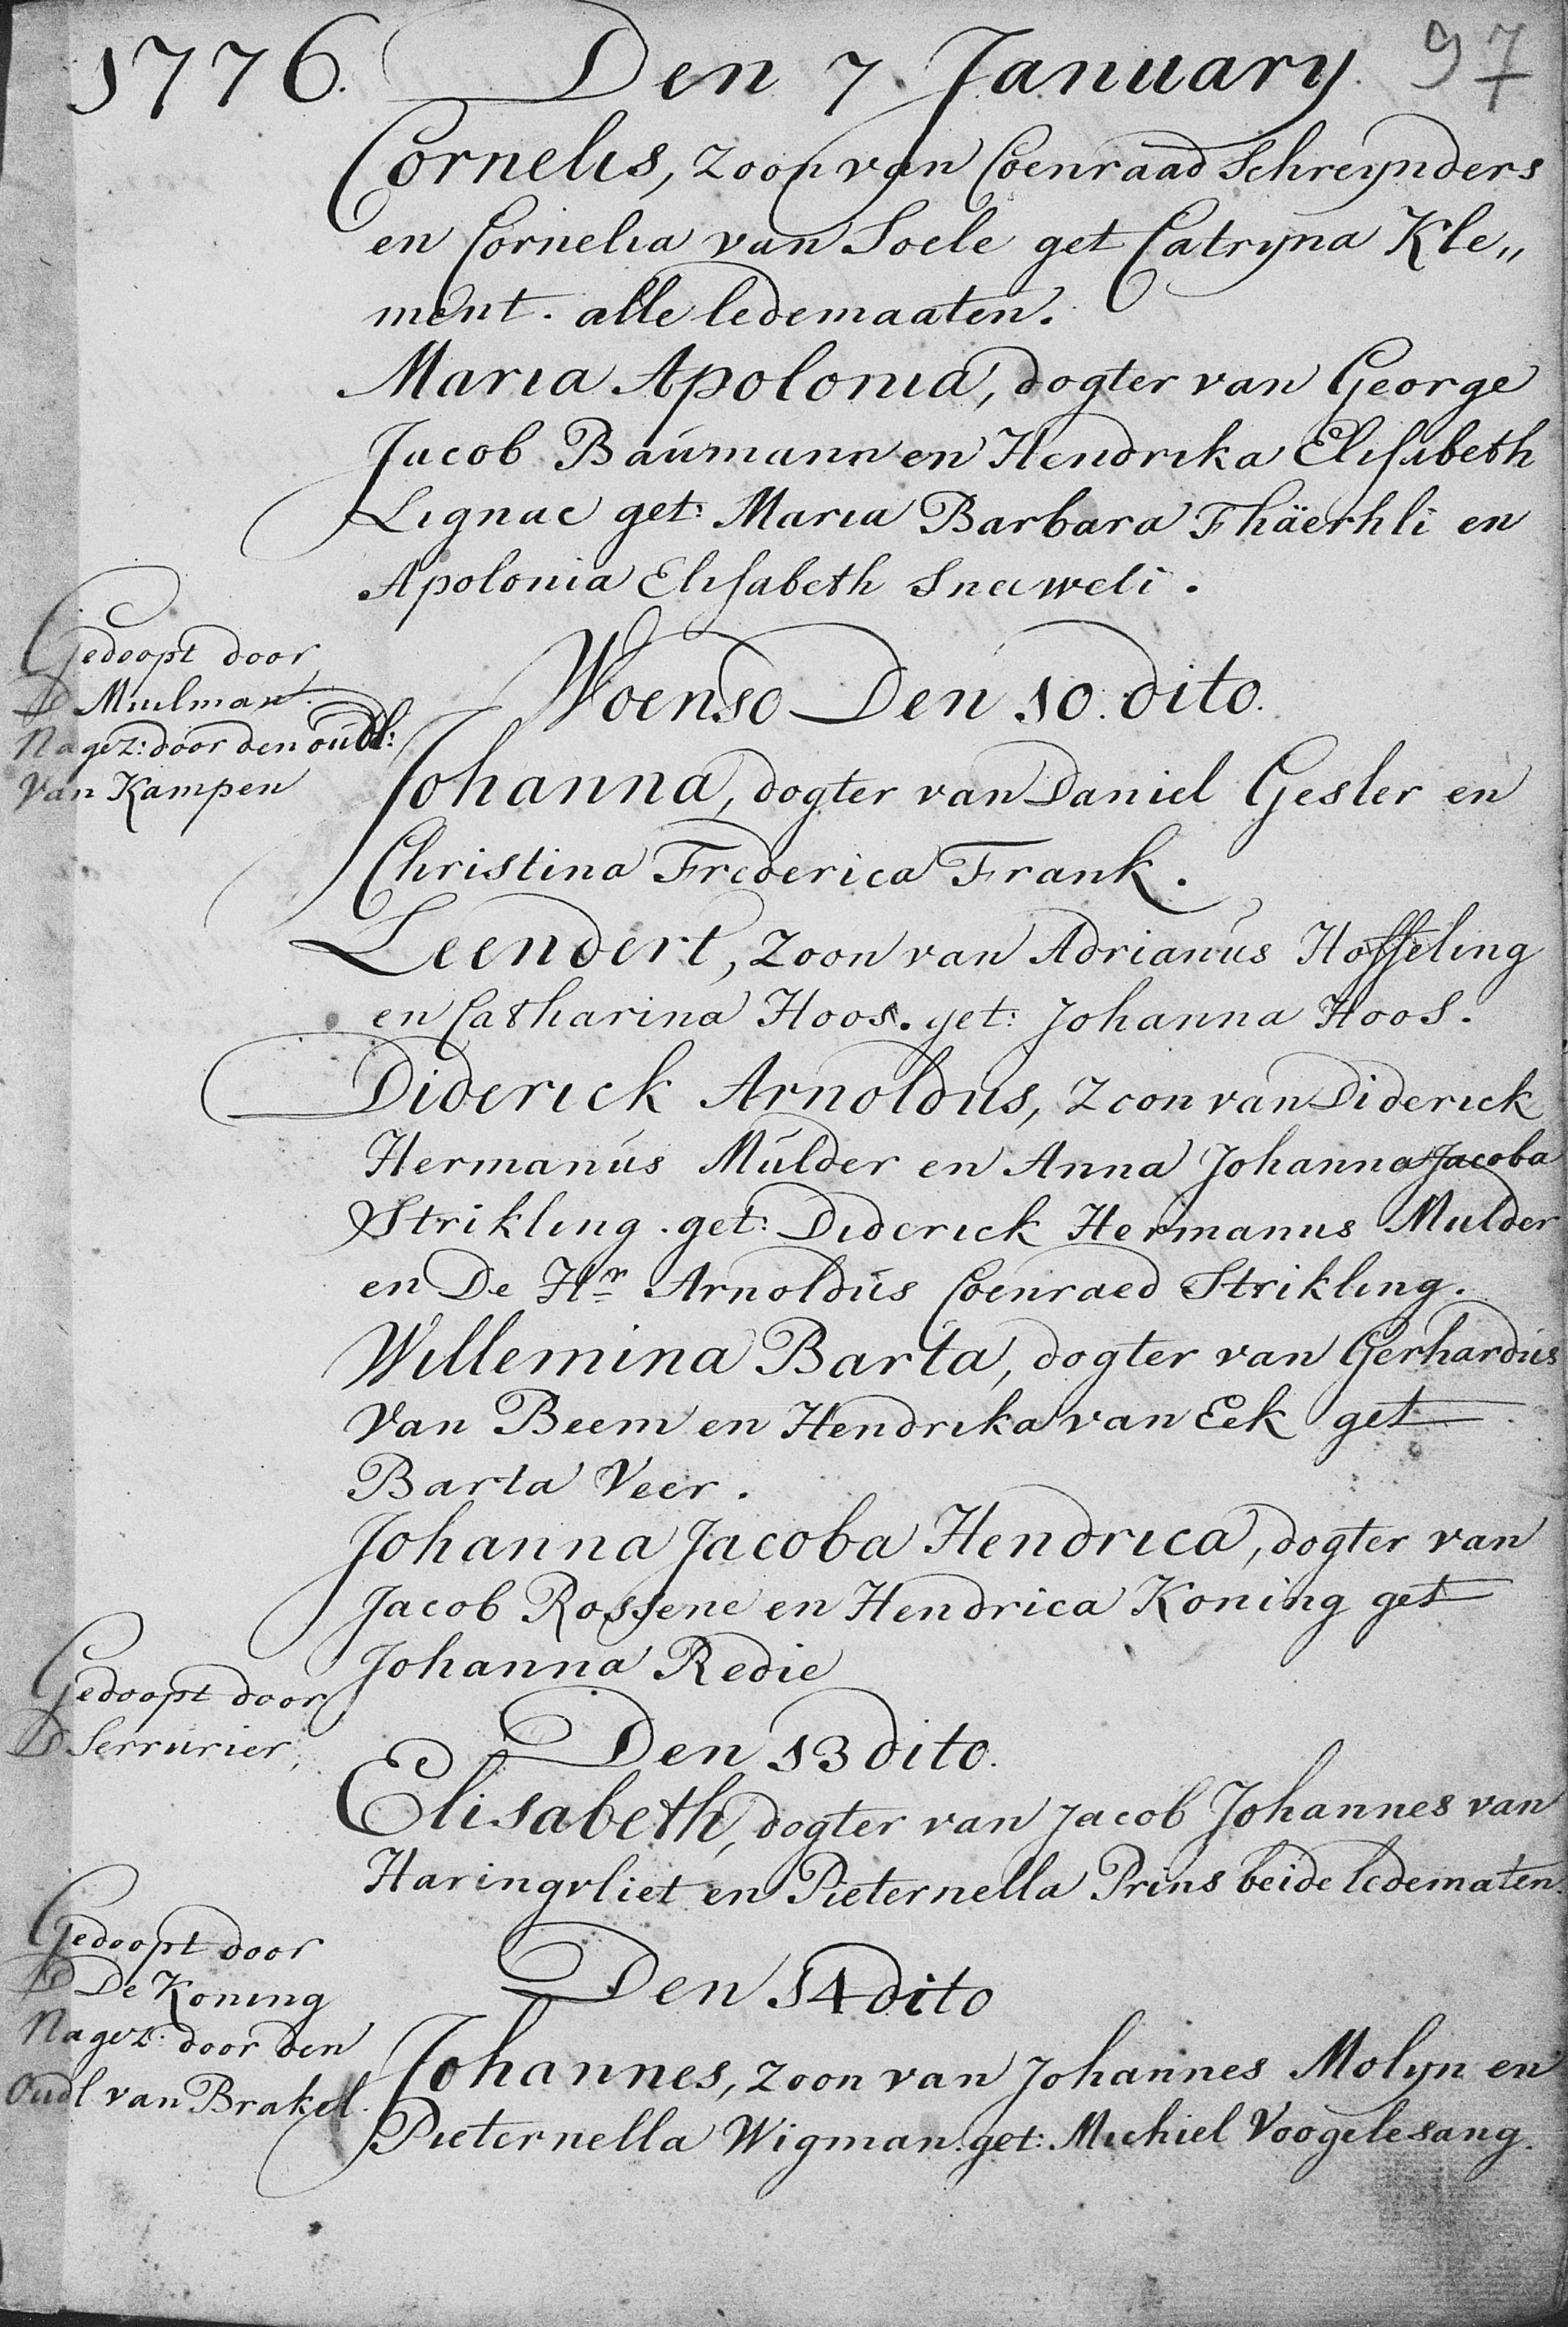 1776. Den 7. January 97
Cornelis, zoon van Coenraad Schreynders
en Cornelia van Soele get Catryna Kle„
ment. alle ledemaaten.
Maria Apolonia, dogter van George
Jacob Baumann en Hendrika Elisabeth
Lignac get: Maria Barbara Fhäerhli en
Apolonia Elisabeth Sneeweli.
Gedoopt door
Ds Muilman.
Nagez: door den oudl:
Van Kampen
Woensd Den 10. dito.
Johanna, dogter van Daniel Gesler en
Christina Frederica Frank.
Leendert, zoon van Adrianus Hoffeling
en Catharina Hoos. get: Johanna Hoos.
Diderick Arnoldus, zoon van Diderick
Hermanus Mulder en Anna Johanna Jacoba
Strikling. get: Diderick Hermanus Mulder
en De Hr Arnoldus Coenraed Strikling.
Willemina Barta, dogter van Gerhardus
Van Beem en Hendrika van Eek get
Barta Veer.
Johanna Jacoba Hendrica, dogter van
Jacob Rossene en Hendrica Koning get
Johanna Redie
Gedoopt door
Ds Serrurier,
Den 13 dito.
Elisabeth, dogter van Jacob Johannes van
Haringvliet en Pieternella Prins beide ledematen.
Gedoopt door
Ds De Koning
Nagez: door den
Oudl van Brakel.
Den 14 dito
Johannes, zoon van Johannes Molyn en
Pieternella Wigman. get: Michiel Voogelesang.